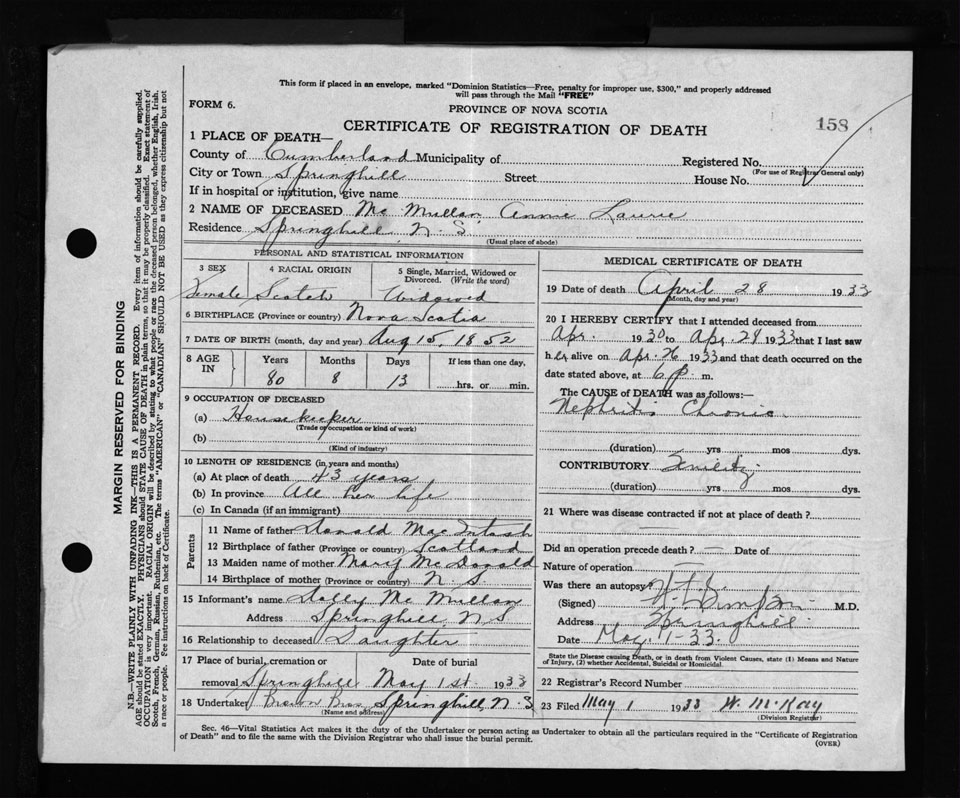 This form if placed in an envelope, marked "Dominion Statistics—Free, penalty for improper use, $300," and properly addressed
will pass through the Mail "FREE"
FORM 6.
PROVINCE OF NOVA SCOTIA
CERTIFICATE OF REGISTRATION OF DEATH
158
1 PLACE OF DEATH—
County of Cumberland Municipality of Registered No.
(For use of Registrar General only)
City or Town Springhill Street House No.
If in hospital or institution, give name
2 NAME OF DECEASED Mc Mullan Annie Laurie
Residence Springhill N. S
(Usual place of abode)
PERSONAL AND STATISTICAL INFORMATION
3 SEX 4 RACIAL ORIGIN 5 Single, Married, Widowed or
Divorced. (Write the word)
Female Scotch Widowed
6 BIRTHPLACE (Province or country) Nova Scotia
7 DATE OF BIRTH (month, day and year) Aug 15, 1852
8 AGE IN Years Months Days If less than one day,
80 8 13 hrs. or min.
9 OCCUPATION OF DECEASED
(a) Housekeeper
(Trade or occupation or kind of work)
(b)
(Kind of industry)
10 LENGTH OF RESIDENCE (in years and months)
(a) At place of death 43 years
(b) In province All her life
(c) In Canada (if an immigrant)
Parents
11 Name of father Donald MacIntosh
12 Birthplace of father (Province or country) Scotland
13 Maiden name of mother Mary McDonald
14 Birthplace of mother (Province or country) N. S
15 Informant's name Dolly Mc Mullan
Address Springhill, N S
16 Relationship to deceased Daughter
17 Place of burial, cremation or Date of burial
removal Springhill May 1st 1933
18 Undertaker Brown Bros Springhill, N. S
(Name and address)
MEDICAL CERTIFICATE OF DEATH
19 Date of death April 28 1933
(Month, day and year)
20 I HEREBY CERTIFY that I attended deceased from
Apr. 1930 to Apr. 28 1933 that I last saw
h er alive on Apr. 26 1933 and that death occurred on the
date stated above, at 6 p. m.
The CAUSE of DEATH was as follows:—
Nephritis Chronic
(duration) yrs mos dys.
CONTRIBUTORY Senility
(duration) yrs mos dys.
21 Where was disease contracted if not at place of death?
Did an operation precede death? — Date of
Nature of operation —
Was there an autopsy?
(Signed) M.D.
Address Springhill
Date May. 1-33.
State the Disease causing Death, or in death from Violent Causes, state (1) Means and Nature
of Injury, (2) whether Accidental, Suicidal or Homicidal.
22 Registrar's Record Number
23 Filed May 1 1933 W. McKay
(Division Registrar)
Sec. 46—Vital Statistics Act makes it the duty of the Undertaker or person acting as Undertaker to obtain all the particulars required in the "Certificate of Registration
of Death" and to file the same with the Division Registrar who shall issue the burial permit.
(OVER)
MARGIN RESERVED FOR BINDING
N.B.—WRITE PLAINLY WITH UNFADING INK—THIS IS A PERMANENT RECORD. Every item of information should be carefully supplied.
AGE should be stated EXACTLY. PHYSICIANS should STATE CAUSE OF DEATH in plain terms, so that it may be properly classified. Exact statement of
OCCUPATION is very important. RACIAL ORIGIN will be described by stating to what people or race the deceased person belonged, whether English, Irish,
Scotch, French, German, Russian, Ruthenian, etc. The terms "AMERICAN" or "CANADIAN" SHOULD NOT BE USED as they express citizenship but not
a race or people. See instructions on back of Certificate.